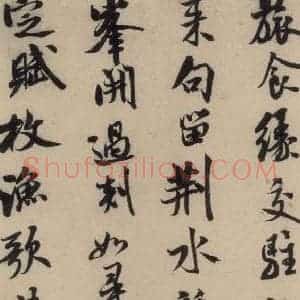 旅食緣交駐
来句留荆水
峯開過剡如尋
定賦枚漁歌
Shufaziliao.com